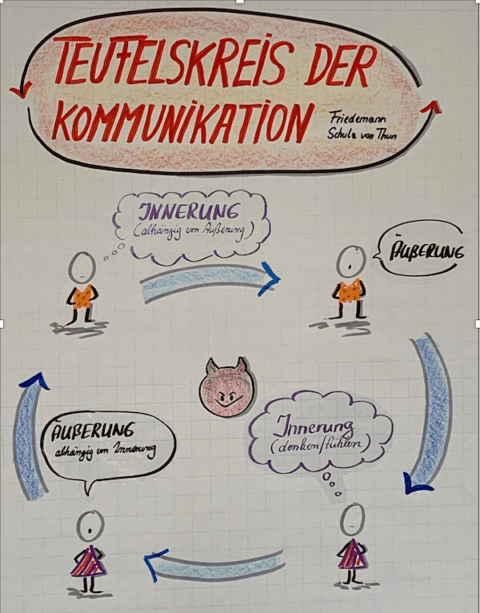 TEUFELSKREIS DER
KOMMUNIKATION
Friedemann
Schulz von Thun
INNERUNG
(abhängig von Äußerung)
ÄUßERUNG
ÄUßERUNG
abhängig von Innerung
Innerung
(denken/fühlen)